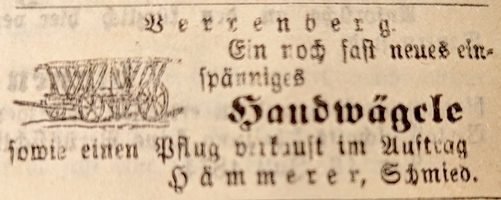 Verrenberg.
Ein noch fast neues ein-
spänniges
Handwägele
sowie einen Pflug verkauft im Auftrag
Hämmerer, Schmied.